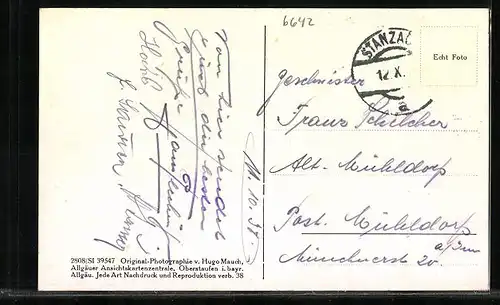 6642
STANZACH
12. X.
Echt Foto
Von hier sendet
Euch die besten
Grüße
Hans
11. 10. 38.
Geschwister
Franz Schilcher
Alt. Mühldorf
Post. Mühldorf
a/Inn
Münchnerstr 20.
2808/SI 39547 Original-Photographie v. Hugo Mauch,
Allgäuer Ansichtskartenzentrale, Oberstaufen i. bayr.
Allgäu. Jede Art Nachdruck und Reproduktion verb. 38